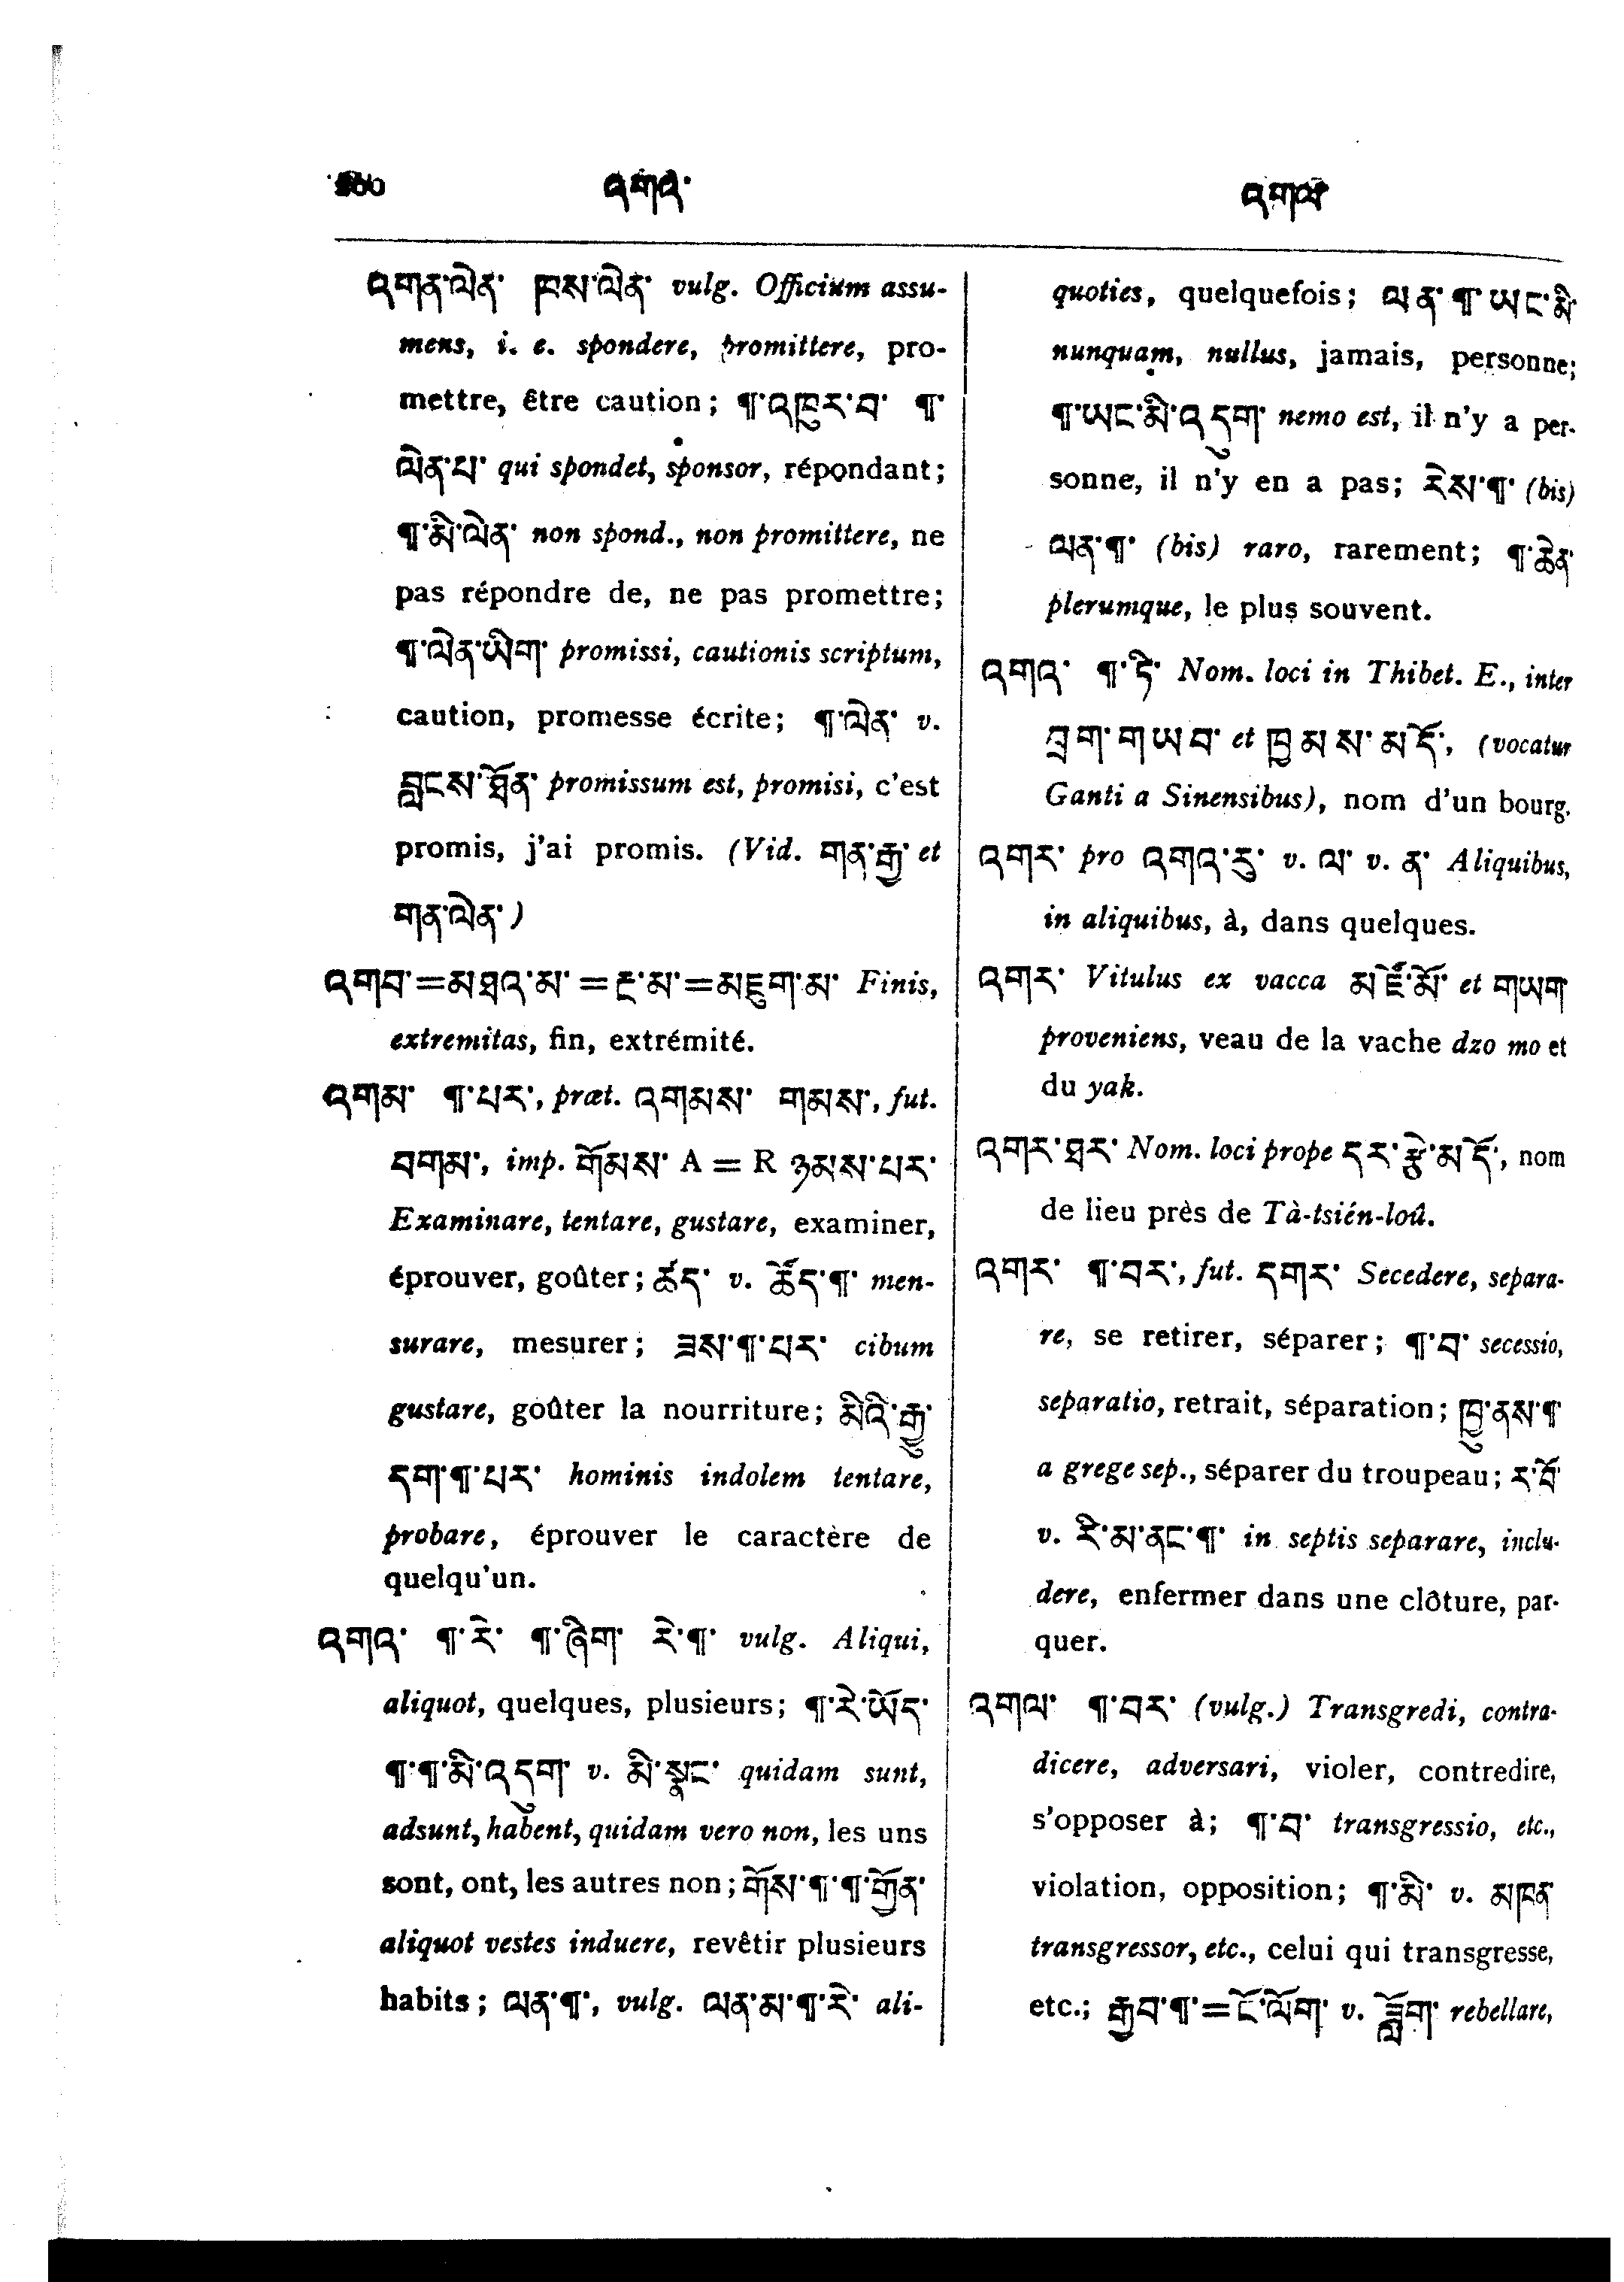 འགའ་
འགལ་
འགན་ལེན་ ཁས་ལེན་ vulg. Officium assu-
mens, i. e. spondere, promittere, pro-
mettre, être caution; ¶་འཁུར་བ་ ¶་
ལེན་པ་ qui spondet, sponsor, répondant;
¶་མི་ལེན་ non spond., non promittere, ne
pas répondre de, ne pas promettre;
¶་ལེན་ཡིག་ promissi, cautionis scriptum,
caution, promesse écrite; ¶་ལེན་ v.
བླངས་ཐོན་ promissum est, promisi, c'est
promis, j'ai promis. (Vid. གན་རྒྱ་ et
གན་ལེན་)
འགབ་=མཐའ་མ་=རྔ་མ་=མཇུག་མ་ Finis,
extremitas, fin, extrémité.
འགམ་ ¶་པར་, præt. འགམས་ གམས་, fut.
བགམ་, imp. གོམས་ A = R ཉམས་པར་
Examinare, tentare, gustare, examiner,
éprouver, goûter; ཚད་ v. ཚོད་¶་ men-
surare, mesurer; ཟས་¶་པར་ cibum
gustare, goûter la nourriture; མིའི་རྒྱུ་
དག་¶་པར་ hominis indolem tentare,
probare, éprouver le caractère de
quelqu'un.
འགའ་ ¶་རེ་ ¶་ཞིག་ རེ་¶་ vulg. Aliqui,
aliquot, quelques, plusieurs; ¶་རེ་ཡོད་
¶་¶་མི་འདུག་ v. མི་སྣང་ quidam sunt,
adsunt, habent, quidam vero non, les uns
sont, ont, les autres non; གོས་¶་¶་གྱོན་
aliquot vestes induere, revêtir plusieurs
habits; ལན་¶་, vulg. ལན་མ་¶་རེ་ ali-
quoties, quelquefois; ལན་¶་ཡང་མི་
nunquam, nullus, jamais, personne;
¶་ཡང་མི་འདུག་ nemo est, il n'y a per-
sonne, il n'y en a pas; རེས་¶་ (bis)
ལན་¶་ (bis) raro, rarement; ¶་ཆེན་
plerumque, le plus souvent.
འགའ་ ¶་ཏི་ Nom. loci in Thibet. E., inter
བྲག་གཡབ་ et ཁྱམས་མདོ་, (vocatur
Ganti a Sinensibus), nom d'un bourg.
འགར་ pro འགའ་རུ་ v. ལ་ v. ན་ Aliquibus,
in aliquibus, à, dans quelques.
འགར་ Vitulus ex vacca མཛོ་མོ་ et གཡག་
proveniens, veau de la vache dzo mo et
du yak.
འགར་ཐར་ Nom. loci prope དར་རྩེ་མདོ་, nom
de lieu près de Tà-tsién-loû.
འགར་ ¶་བར་, fut. དགར་ Secedere, separa-
re, se retirer, séparer; ¶་བ་ secessio,
separatio, retrait, séparation; ཁྱུ་ནས་¶་
a grege sep., séparer du troupeau; ར་བོ་
v. རི་མ་ནང་¶་ in septis separare, inclu-
dere, enfermer dans une clôture, par-
quer.
འགལ་ ¶་བར་ (vulg.) Transgredi, contra-
dicere, adversari, violer, contredire,
s'opposer à; ¶་བ་ transgressio, etc.,
violation, opposition; ¶་མི་ v. མཁན་
transgressor, etc., celui qui transgresse,
etc.; རྒྱབ་¶་=ངོ་ལོག་ v. ཟློག་ rebellare,